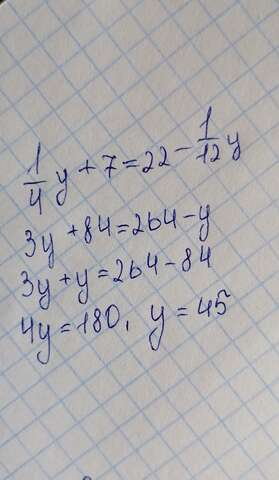 1/4 y + 7 = 22 - 1/12 y
3y + 84 = 264 - y
3y + y = 264 - 84
4y = 180, y = 45